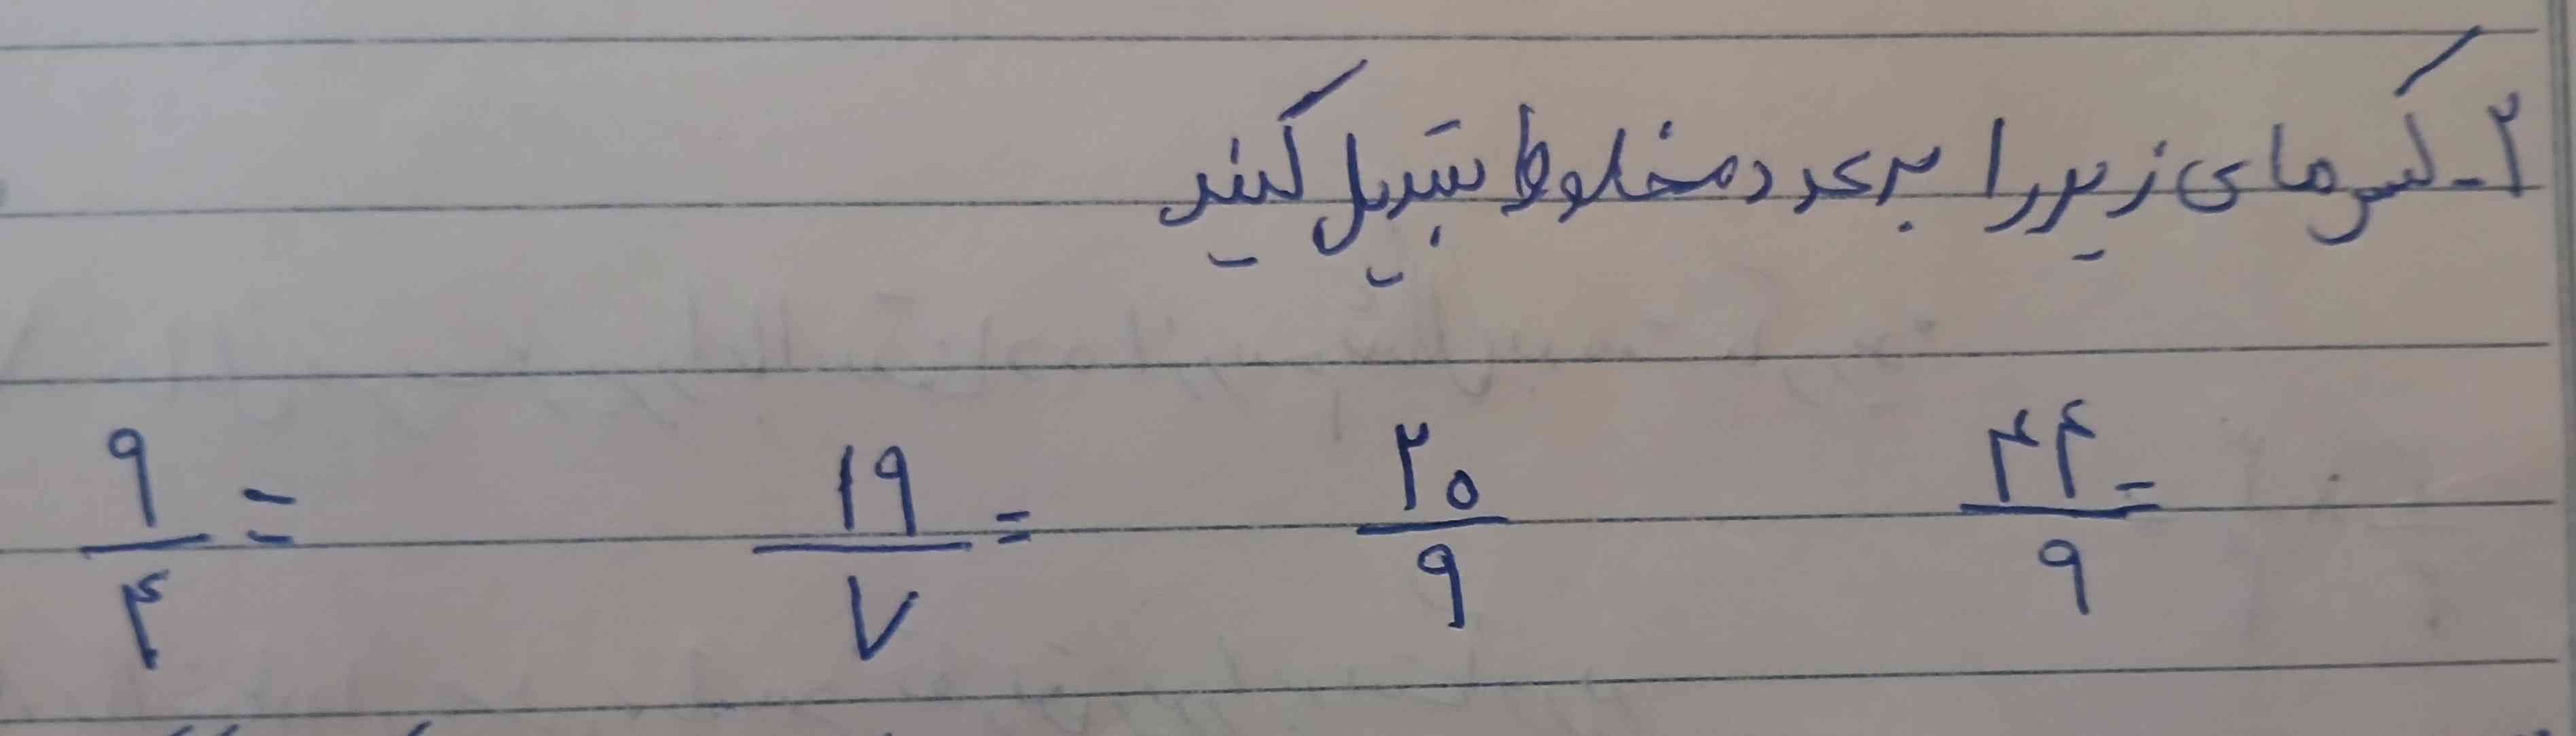 ۲- کسرهای زیر را به عدد مخلوط تبدیل کنید
۹/۴ = ۱۹/۷ = ۲۰/۹ ۴۴/۹ =